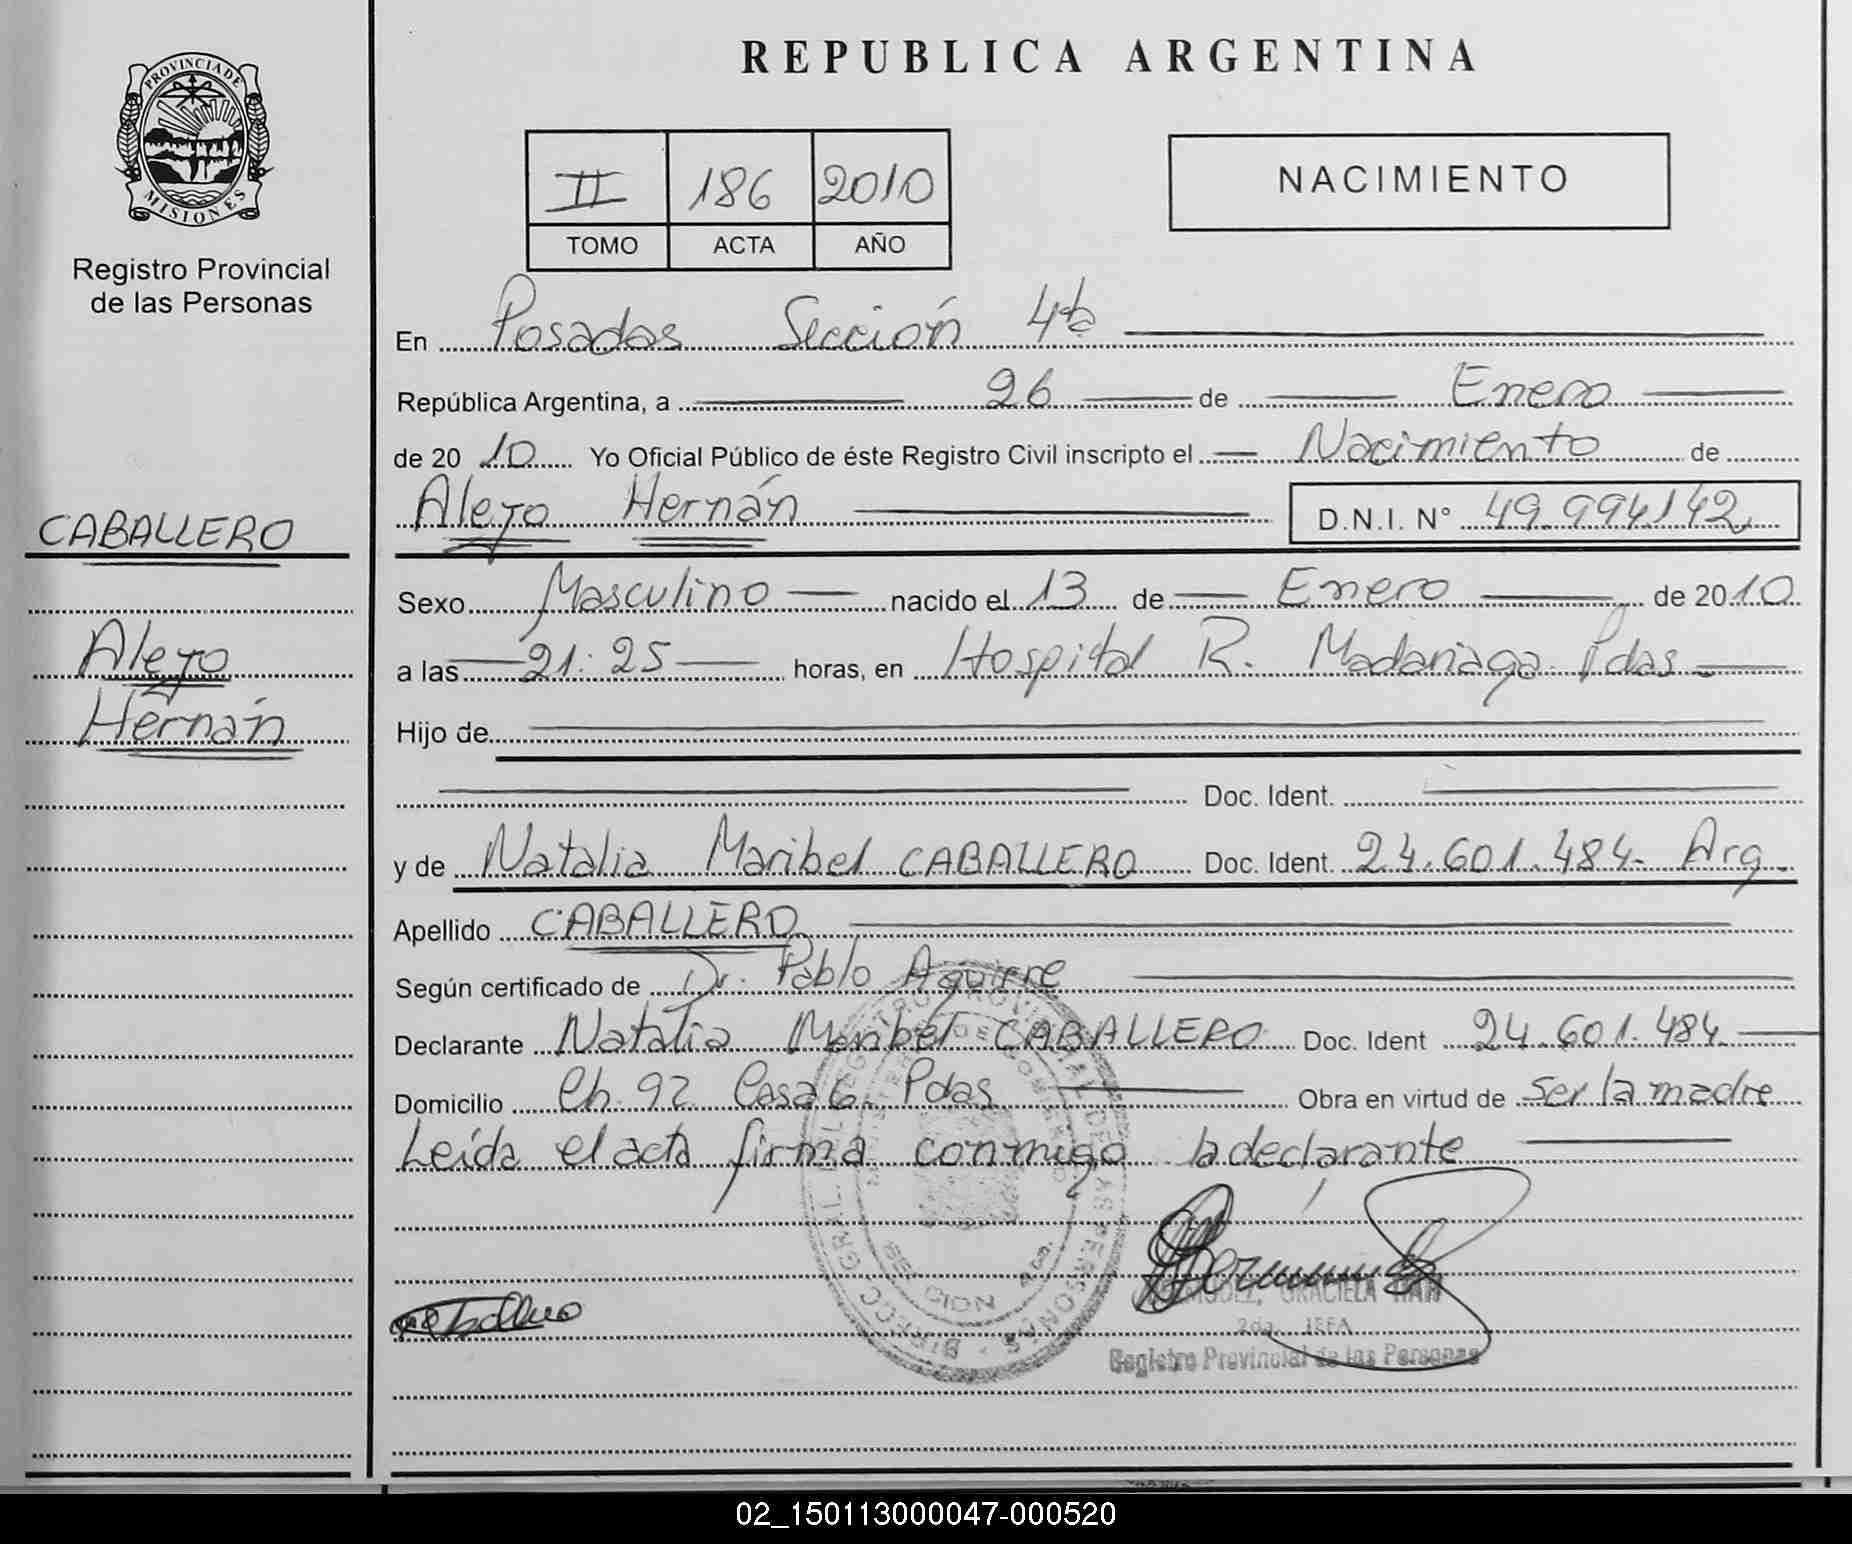 PROVINCIA DE
MISIONES
Registro Provincial
de las Personas
CABALLERO
Aleyo
Hernán
REPUBLICA ARGENTINA
II 186 2010
TOMO ACTA AÑO
NACIMIENTO
En Posadas Sección 4ta
República Argentina, a 26 de Enero
de 2010 Yo Oficial Público de éste Registro Civil inscripto el Nacimiento de
Aleyo Hernán D.N.I. N° 49.994.142
Sexo Masculino nacido el 13 de Enero de 2010
a las 21:25 horas, en Hospital R. Madariaga Pdas
Hijo de
Doc. Ident.
y de Natalia Maribel CABALLERO Doc. Ident. 24.601.484. Arg.
Apellido CABALLERO
Según certificado de Dr. Pablo Aguirre
Declarante Natalia Maribel CABALLERO Doc. Ident 24.601.484
Domicilio Ch. 92 Casa 6 Pdas Obra en virtud de ser la madre
Leída el acta firma conmigo la declarante
GRACIELA
2da. JEFA
Registro Provincial de las Personas
02_150113000047-000520